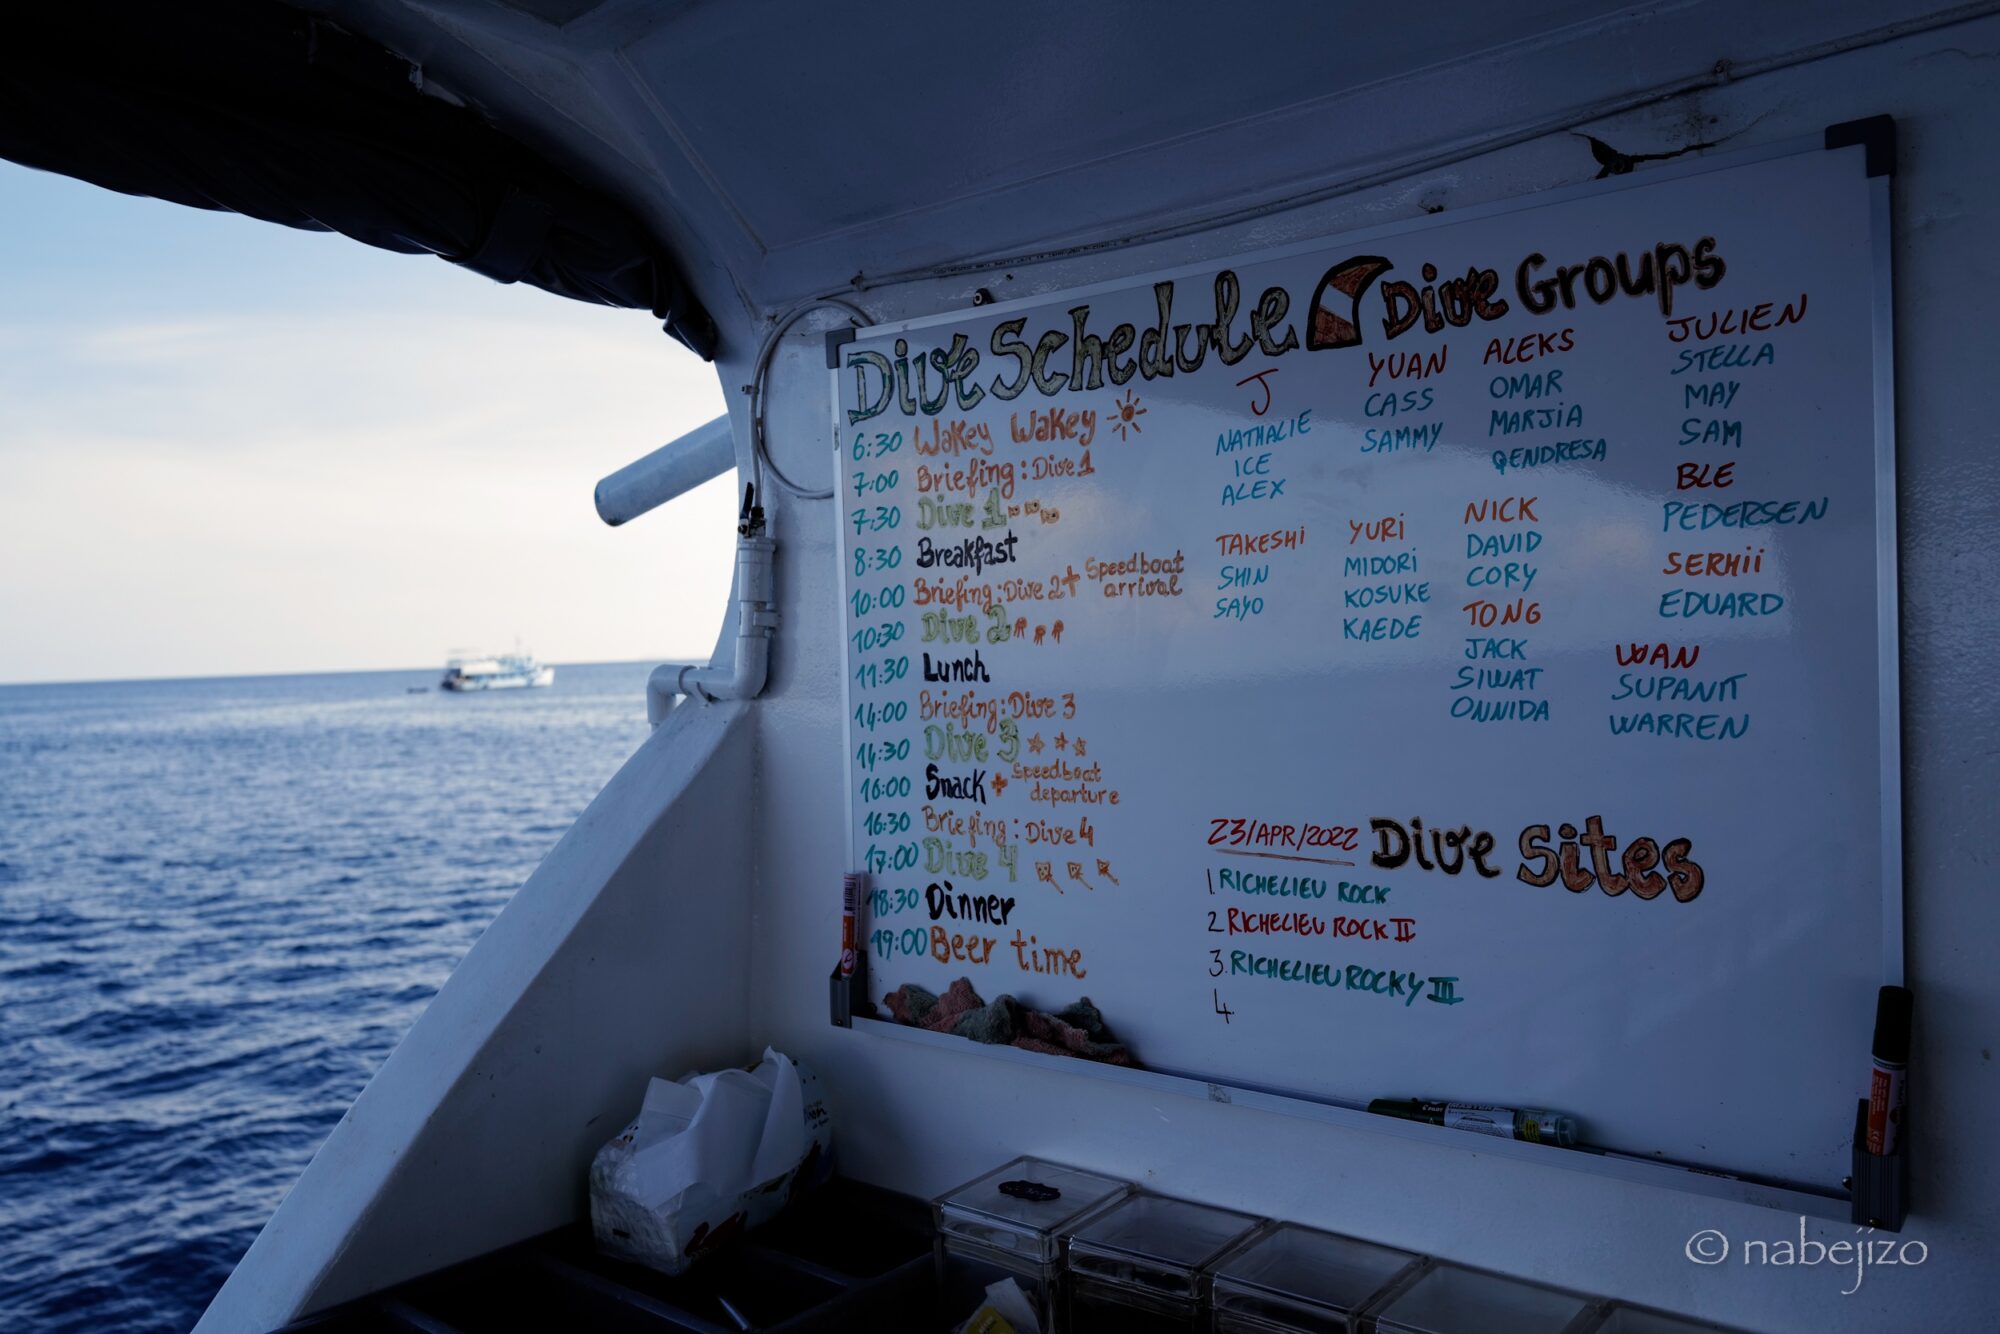 Dive Schedule
6:30 Wakey Wakey
7:00 Briefing: Dive 1
7:30 Dive 1
8:30 Breakfast
10:00 Briefing: Dive 2 + Speedboat arrival
10:30 Dive 2
11:30 Lunch
14:00 Briefing: Dive 3
14:30 Dive 3
16:00 Snack + Speedboat departure
16:30 Briefing: Dive 4
17:00 Dive 4
18:30 Dinner
19:00 Beer time
Dive Groups
J
NATHALIE
ICE
ALEX
YUAN
CASS
SAMMY
ALEKS
OMAR
MARJIA
QENDRESA
JULIEN
STELLA
MAY
SAM
BLE
PEDERSEN
TAKESHI
SHIN
SAYO
YURI
MIDORI
KOSUKE
KAEDE
NICK
DAVID
CORY
TONG
JACK
SIWAT
ONNIDA
SERHII
EDUARD
WAN
SUPANIT
WARREN
23/APR/2022 Dive Sites
1 RICHELIEU ROCK
2 RICHELIEU ROCK II
3. RICHELIEU ROCKY III
4.
© nabejizo